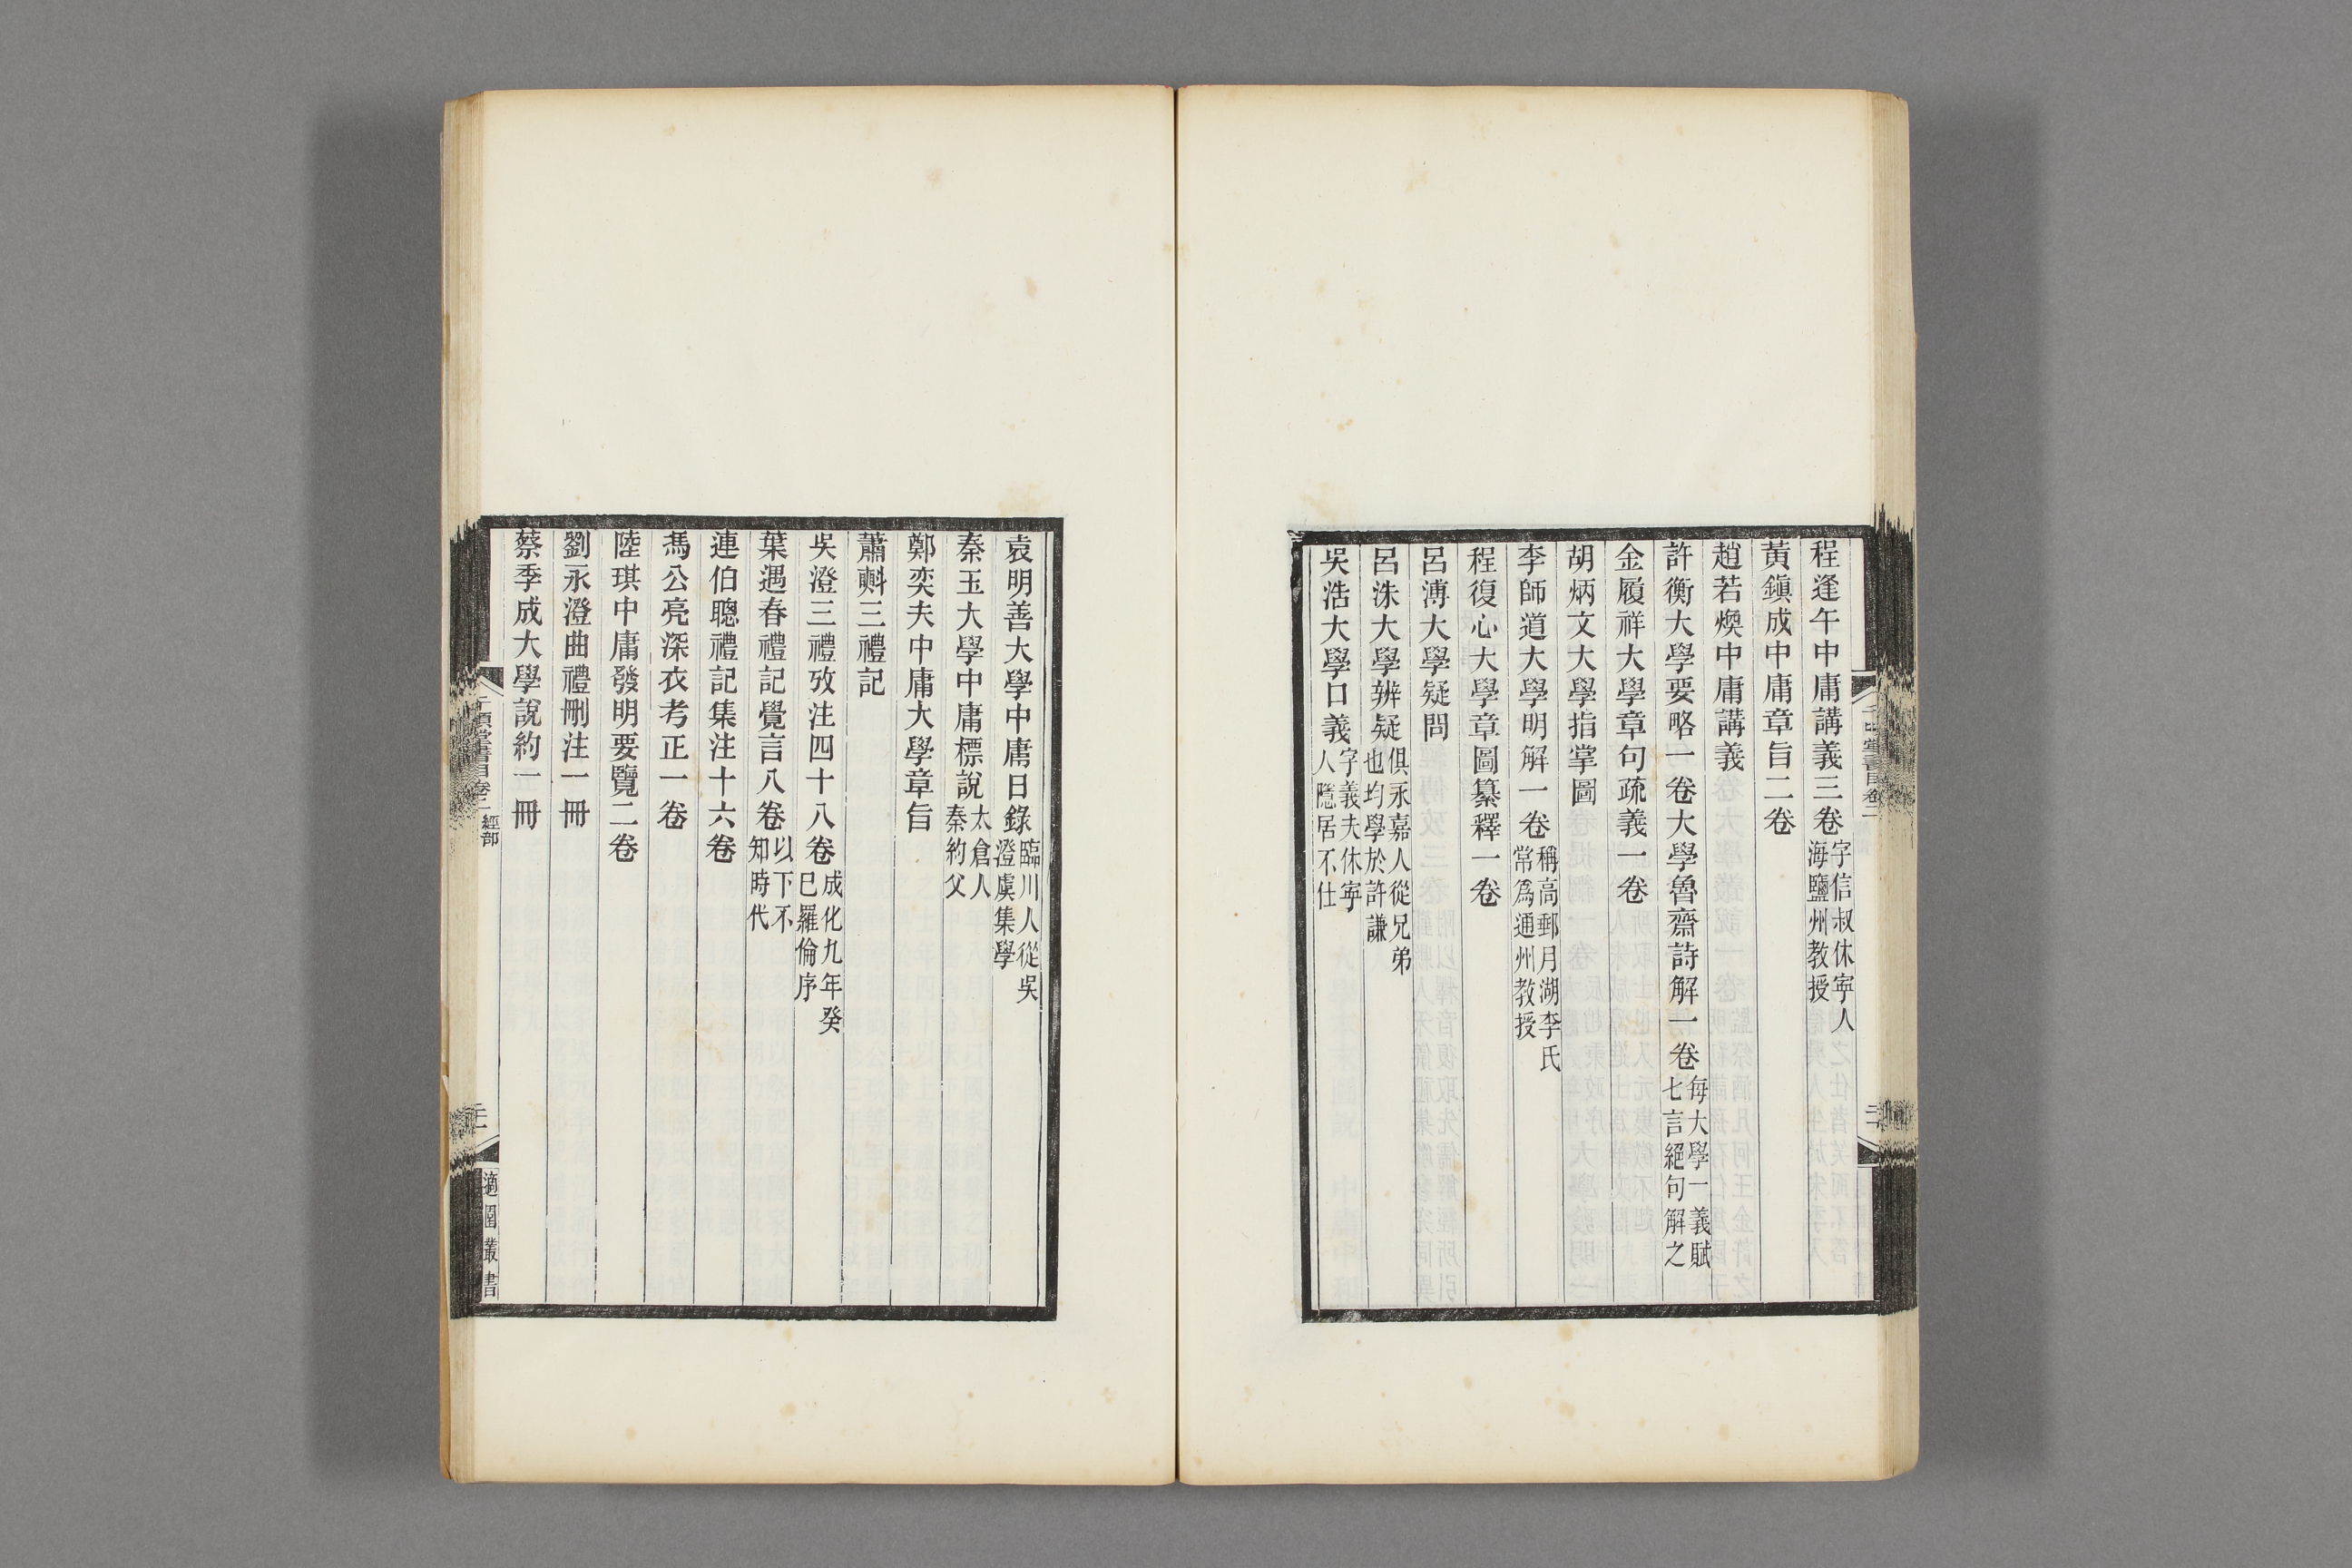 程逢午中庸講義三卷字信叔休寧人海鹽州教授
黃鎮成中庸章旨二卷
趙若煥中庸講義
許衡大學要略一卷大學魯齋詩解一卷每大學一義賦七言絕句解之
金履祥大學章句疏義一卷
胡炳文大學指掌圖
李師道大學明解一卷稱高郵月湖李氏常爲通州教授
程復心大學章圖纂釋一卷
呂溥大學疑問
呂洙大學辨疑俱永嘉人從兄弟也均學於許謙
吳浩大學口義字義夫休寧人隱居不仕
袁明善大學中庸日錄臨川人從吳澄虞集學
秦玉大學中庸標說太倉人秦約父
鄭奕夫中庸大學章旨
蕭㪺三禮記
吳澄三禮攷注四十八卷成化九年癸巳羅倫序
葉遇春禮記覺言八卷以下不知時代
連伯聰禮記集注十六卷
馮公亮深衣考正一卷
陸琪中庸發明要覽二卷
劉永澄曲禮刪注一冊
蔡季成大學說約一冊
千頃堂書目卷二 經部
適園叢書